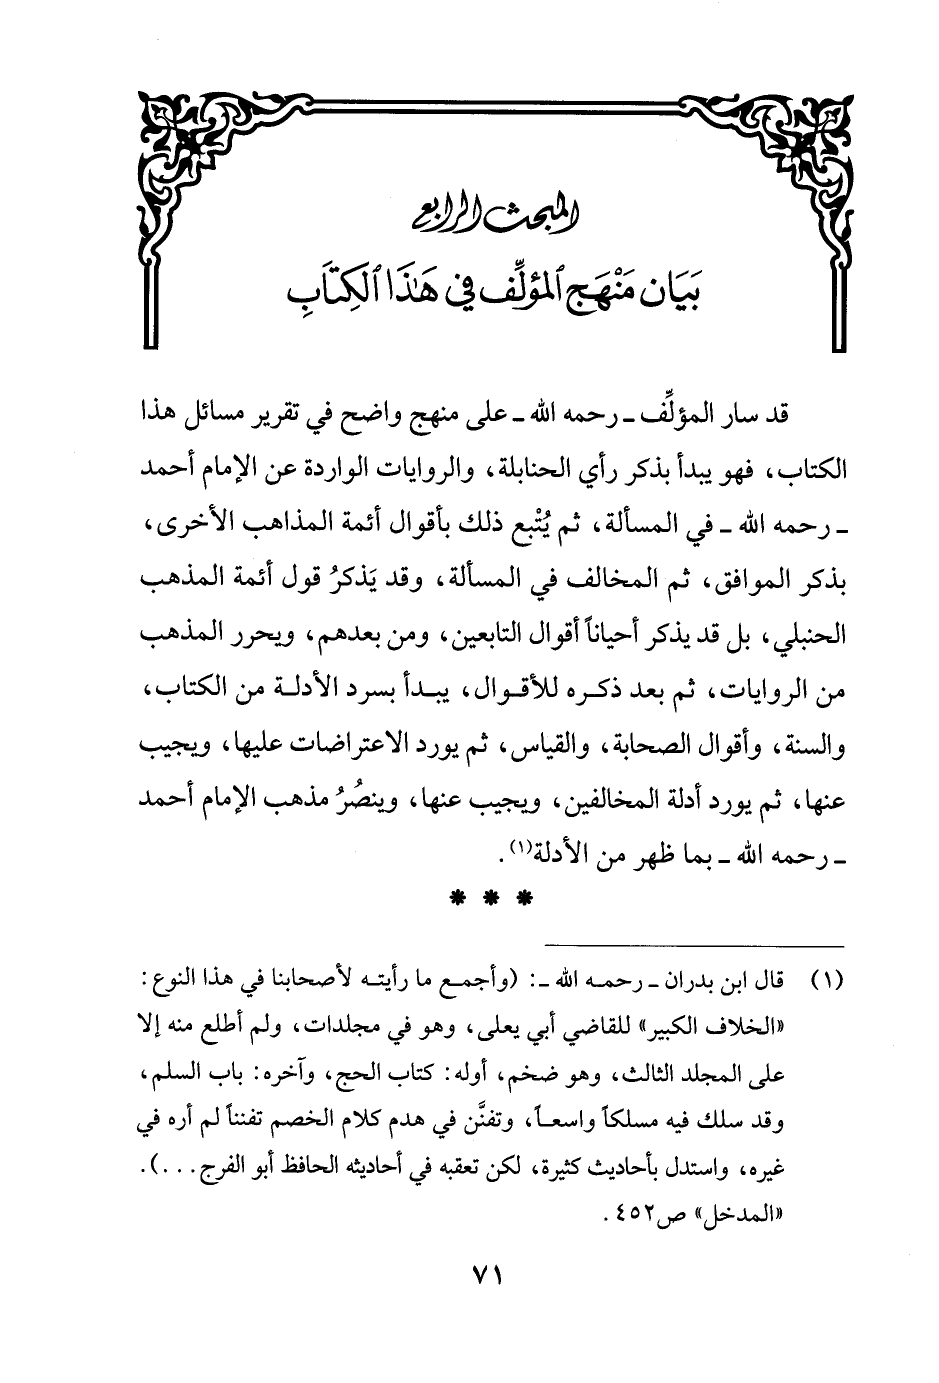 المبحث الرابع
بَيَان مَنْهَج ٱلمؤلِّف في هَٰذَا ٱلكِتَابِ
قد سار المؤلِّف ـ رحمه الله ـ على منهج واضح في تقرير مسائل هذا
الكتاب، فهو يبدأ بذكر رأي الحنابلة، والروايات الواردة عن الإمام أحمد
ـ رحمه الله ـ في المسألة، ثم يُتْبع ذلك بأقوال أئمة المذاهب الأخرى،
بذكر الموافق، ثم المخالف في المسألة، وقد يَذكرُ قول أئمة المذهب
الحنبلي، بل قد يذكر أحياناً أقوال التابعين، ومن بعدهم، ويحرر المذهب
من الروايات، ثم بعد ذكره للأقوال، يبدأ بسرد الأدلة من الكتاب،
والسنة، وأقوال الصحابة، والقياس، ثم يورد الاعتراضات عليها، ويجيب
عنها، ثم يورد أدلة المخالفين، ويجيب عنها، وينصُرُ مذهب الإمام أحمد
ـ رحمه الله ـ بما ظهر من الأدلة(١).
* * *
(١) قال ابن بدران ـ رحمه الله ـ: (وأجمع ما رأيته لأصحابنا في هذا النوع:
«الخلاف الكبير» للقاضي أبي يعلى، وهو في مجلدات، ولم أطلع منه إلا
على المجلد الثالث، وهو ضخم، أوله: كتاب الحج، وآخره: باب السلم،
وقد سلك فيه مسلكاً واسعاً، وتفنَّن في هدم كلام الخصم تفنناً لم أره في
غيره، واستدل بأحاديث كثيرة، لكن تعقبه في أحاديثه الحافظ أبو الفرج...).
«المدخل» ص٤٥٢.
٧١